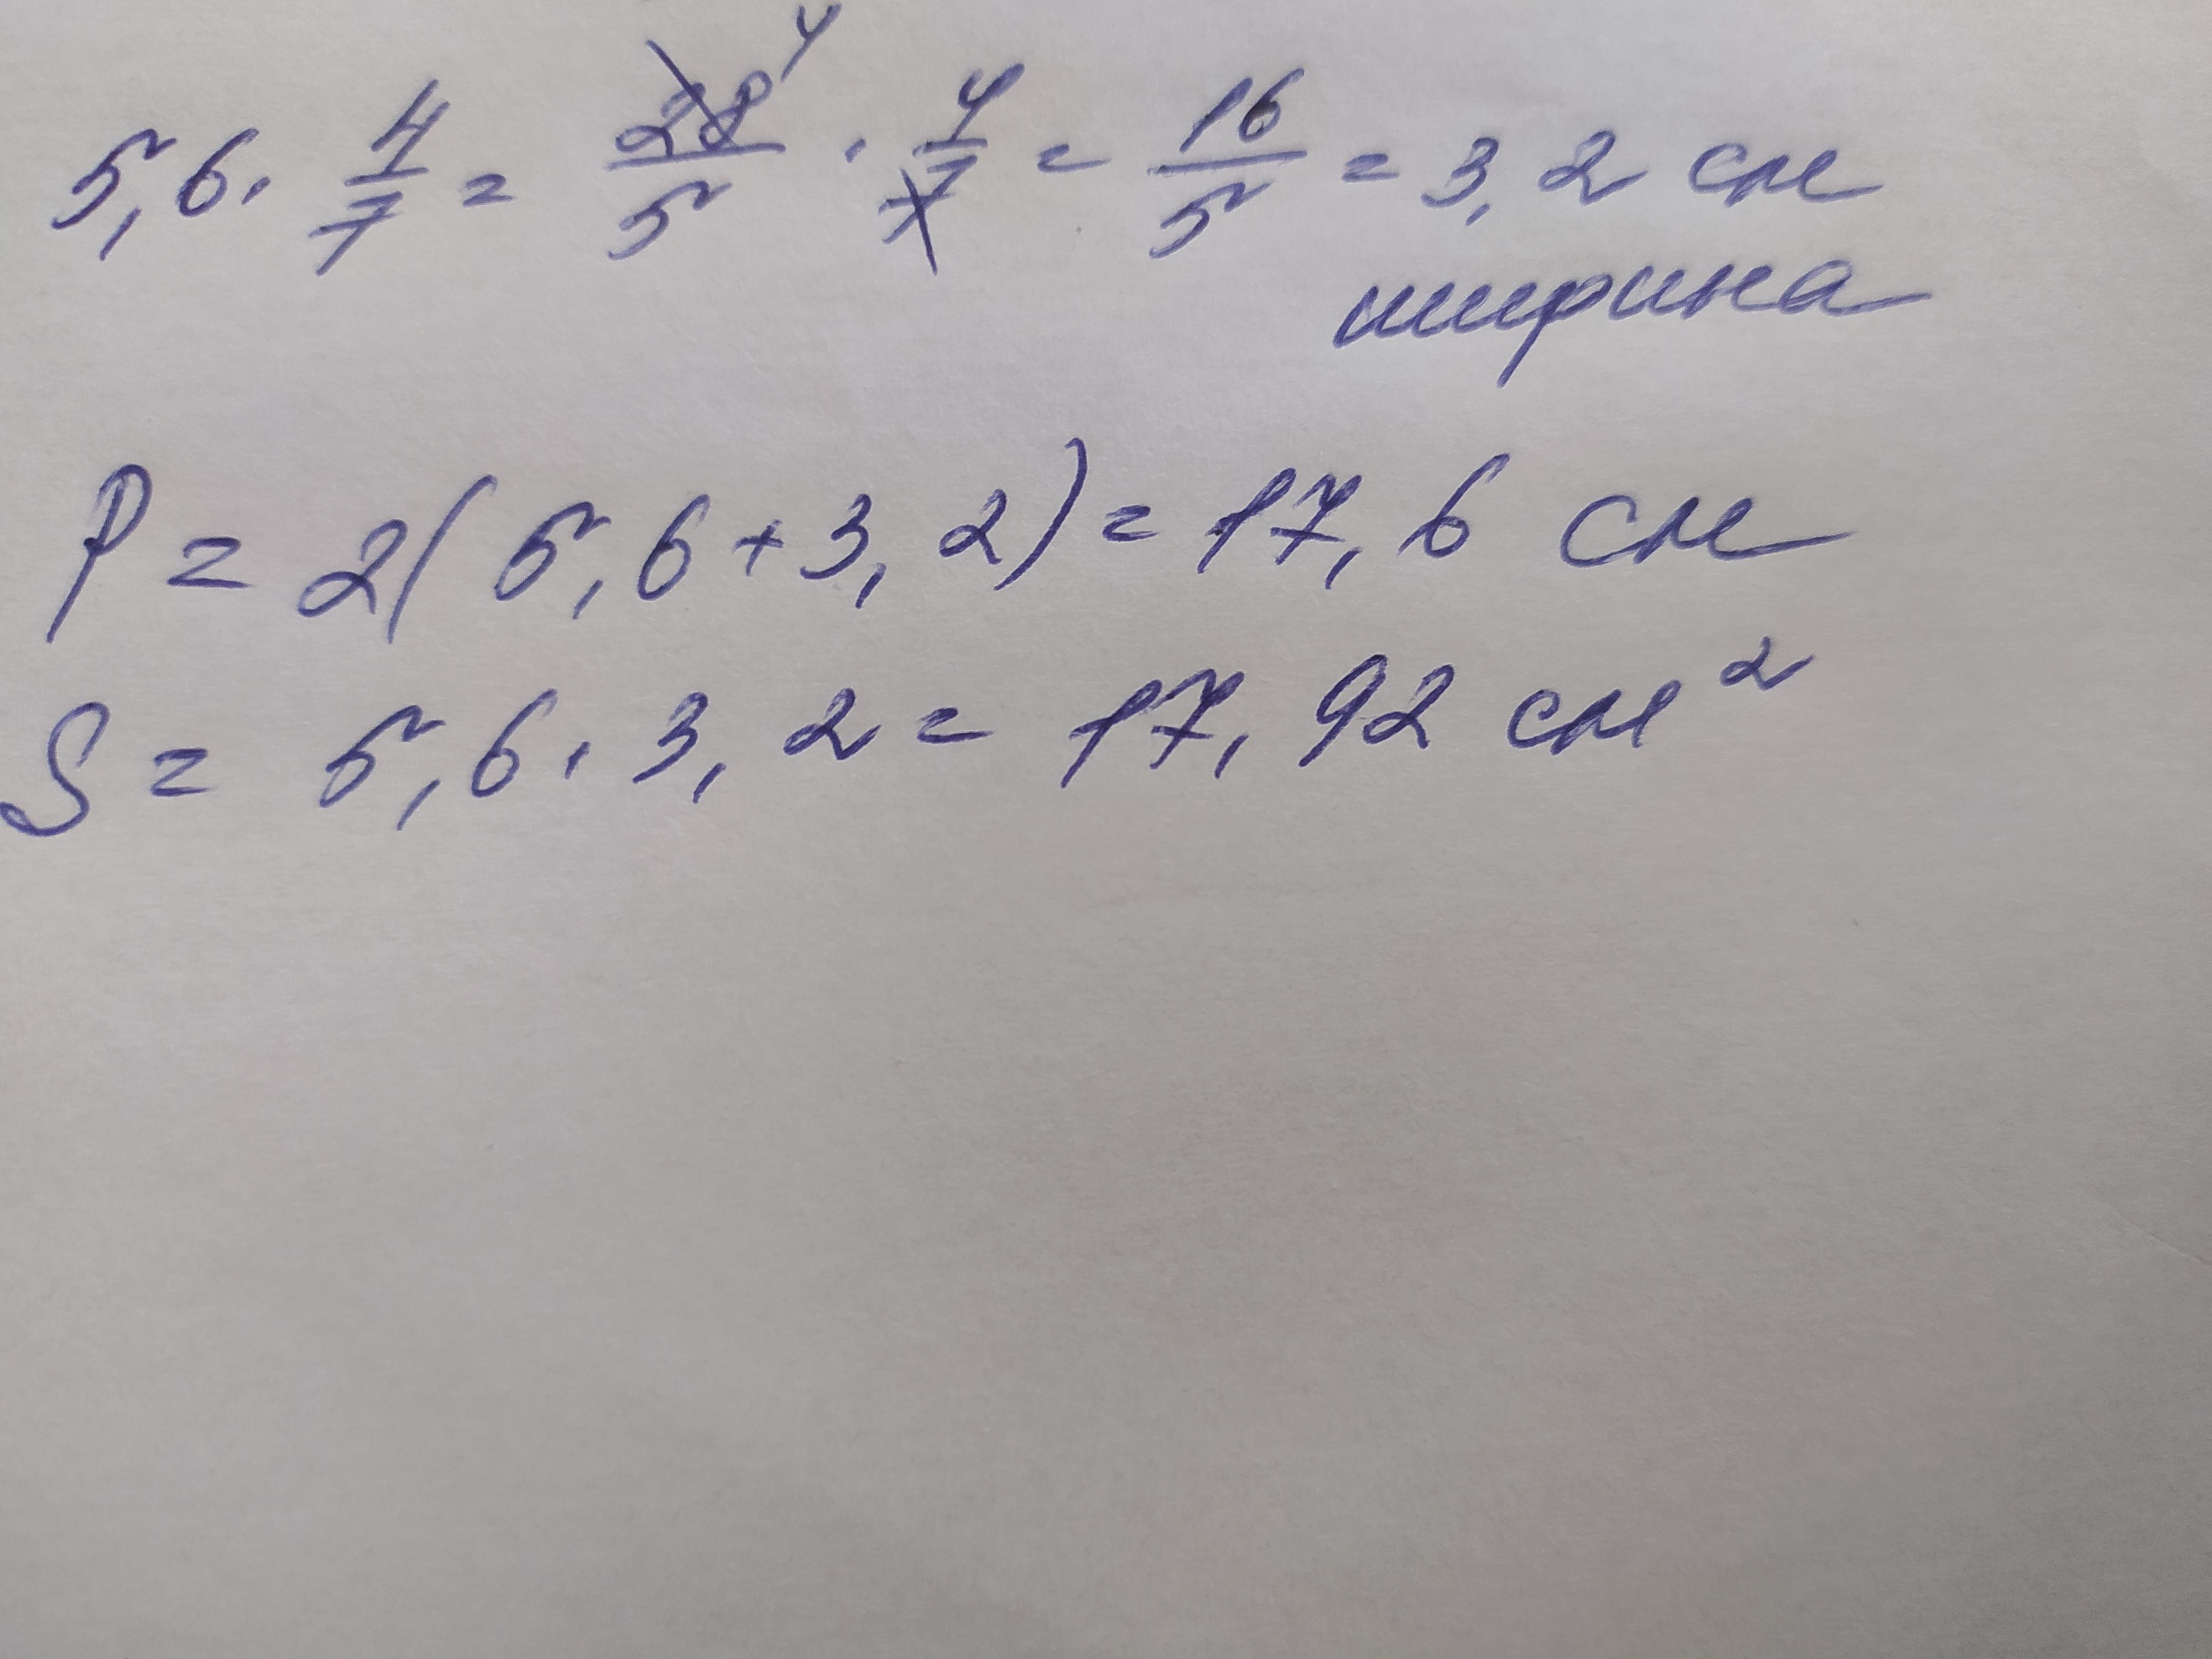 5,6 · 4/7 = 28/5 4 · 4/7 = 16/5 = 3,2 см
ширина
P = 2(5,6+3,2) = 17,6 см
S = 5,6 · 3,2 = 17,92 см²